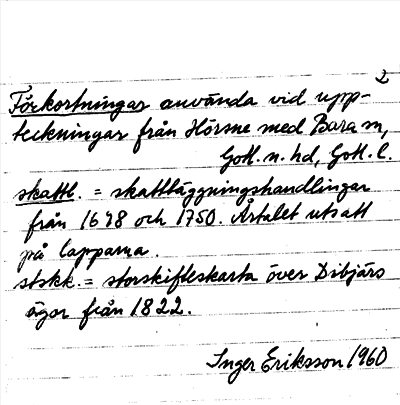 2
Förkortningar använda vid upp-
teckningar från Hörsne med Bara sn,
Gotl. n. hd, Gotl. l.
skattl. = skattläggningshandlingar
från 1698 och 1750. Årtalet utsatt
på lapparna.
stskk. = storskifteskarta över Dibjärs
ägor från 1822.
Inger Eriksson 1960